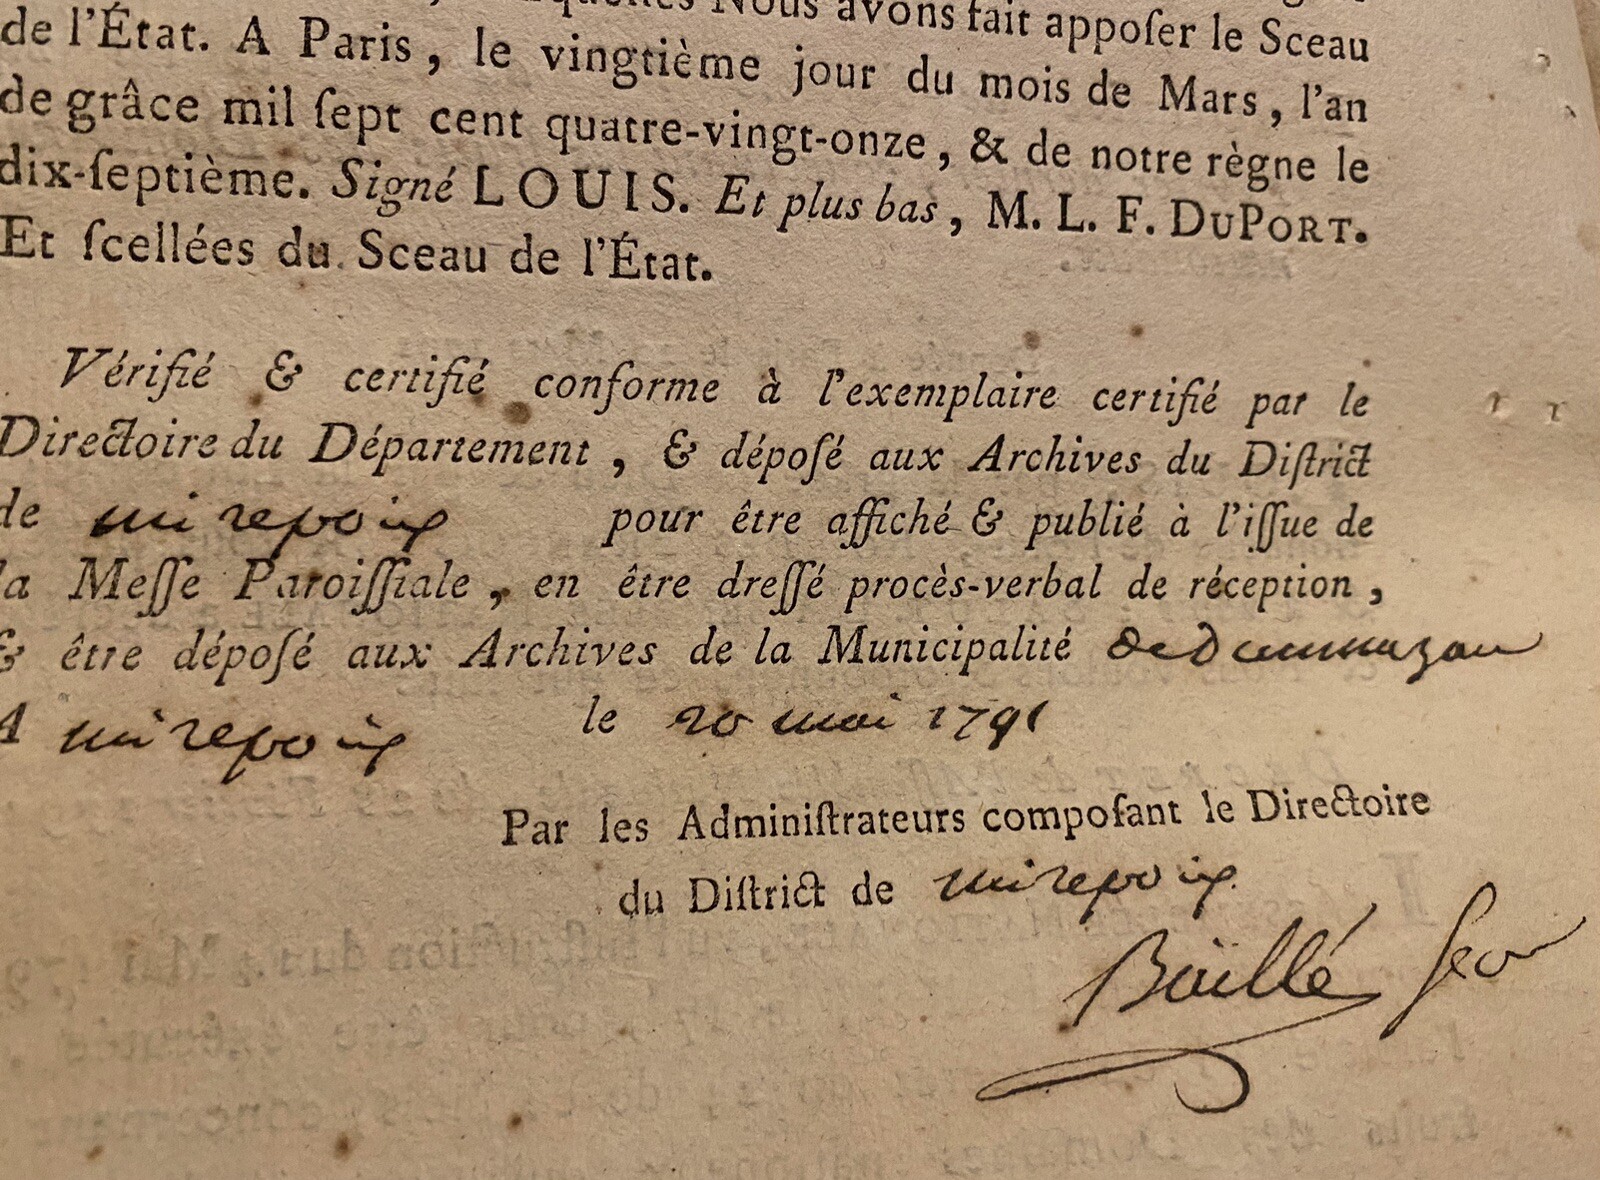 Nous avons fait apposer le Sceau
de l'État. A Paris, le vingtième jour du mois de Mars, l'an
de grâce mil ſept cent quatre-vingt-onze, & de notre règne le
dix-ſeptième. Signé LOUIS. Et plus bas, M. L. F. DUPORT.
Et ſcellées du Sceau de l'État.
Vérifié & certifié conforme à l'exemplaire certifié par le
Directoire du Département, & dépoſé aux Archives du Diſtrict
de mirepoix pour être affiché & publié à l'iſſue de
la Meſſe Paroiſſiale, en être dreſſé procès-verbal de réception,
& être dépoſé aux Archives de la Municipalité de
A mirepoix le 20 mai 1791
Par les Adminiſtrateurs compoſant le Directoire
du Diſtrict de mirepoix.
Baillé